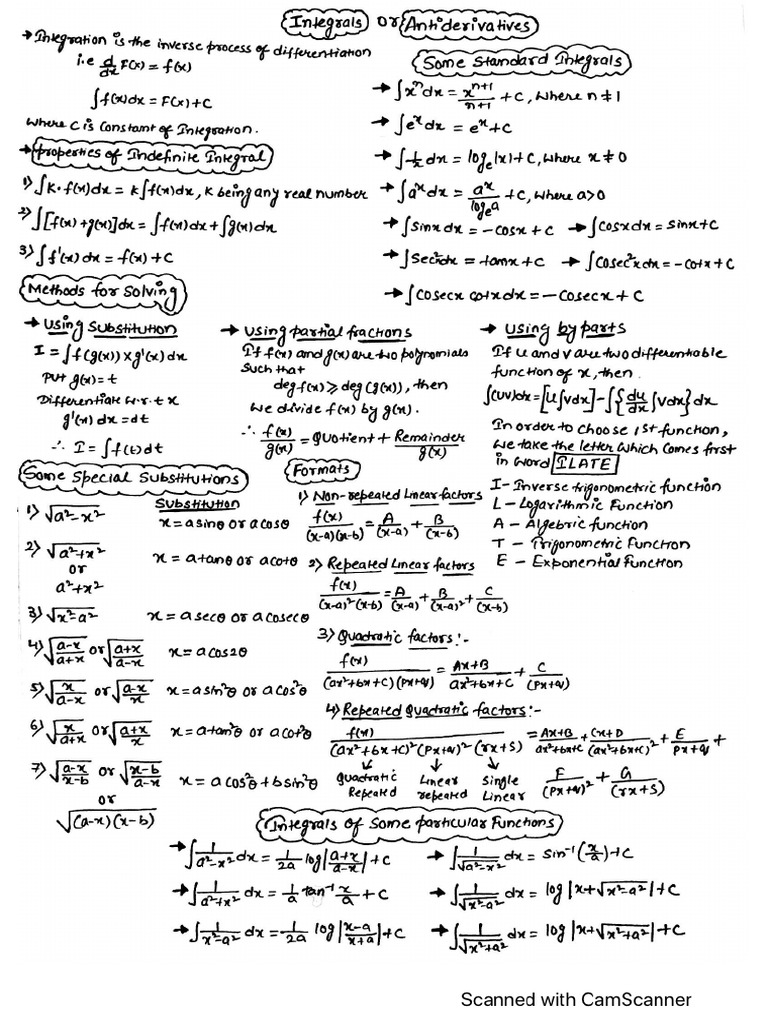 Integrals or Antiderivatives
→ Integration is the inverse process of differentiation
i.e d/dx F(x) = f(x)
∫f(x)dx = F(x)+C
Where C is Constant of Integration.
→ Properties of Indefinite Integral
1) ∫K·f(x)dx = k∫f(x)dx, K being any real number
2) ∫[f(x)+g(x)]dx = ∫f(x)dx+∫g(x)dx
3) ∫f'(x)dx = f(x)+C
Some Standard Integrals
→ ∫xⁿdx = xⁿ⁺¹/n+1 + C, Where n ≠ 1
→ ∫eˣdx = eˣ+C
→ ∫1/x dx = logₑ|x|+C, Where x ≠ 0
→ ∫aˣdx = aˣ/logₑa + C, Where a>0
→ ∫Sinx dx = -Cosx + C → ∫Cosxdx = Sinx+C
→ ∫Sec²xdx = tanx + C → ∫Cosec²xdx = -Cotx + C
→ ∫Cosecx Cotxdx = -Cosecx + C
Methods for Solving
→ Using Substitution
I = ∫f(g(x)) × g'(x)dx
Put g(x) = t
Differentiate w.r.t x
g'(x) dx = dt
∴ I = ∫f(t)dt
→ Using partial fractions
If f(x) and g(x) are two polynomials
Such that
deg f(x) ≥ deg (g(x)), then
We divide f(x) by g(x).
∴ f(x)/g(x) = Quotient + Remainder/g(x)
→ Using by parts
If u and v are two differentiable
function of x, then.
∫(uv)dx = [u∫vdx] - ∫{du/dx ∫vdx}dx
In order to choose 1st function,
We take the letter which comes first
in word ILATE
I - Inverse trigonometric function
L - Logarithmic Function
A - Algebric function
T - Trigonometric Function
E - Exponential Function
Some Special Substitutions
Substitution
1) √a²-x² x = a sinθ or a cosθ
2) √a²+x² or a²+x² x = a tanθ or a cotθ
3) √x²-a² x = a secθ or a cosecθ
4) √a-x/a+x or √a+x/a-x x = a cos2θ
5) √x/a-x or √a-x/x x = a sin²θ or a cos²θ
6) √x/a+x or √a+x/x x = a tan²θ or a cot²θ
7) √a-x/x-b or √x-b/a-x or √(a-x)(x-b) x = a cos²θ + b sin²θ
Formats
1) Non-repeated Linear factors
f(x)/(x-a)(x-b) = A/(x-a) + B/(x-b)
2) Repeated Linear factors
f(x)/(x-a)²(x-b) = A/(x-a) + B/(x-a)² + C/(x-b)
3) Quadratic factors:-
f(x)/(ax²+bx+c)(px+q) = Ax+B/ax²+bx+c + C/(px+q)
4) Repeated Quadratic factors:-
f(x)/(ax²+bx+c)²(px+q)²(rx+s) = Ax+B/ax²+bx+c + Cx+D/(ax²+bx+c)² + E/px+q +
F/(px+q)² + G/(rx+s)
↓ ↓ ↓
Quadratic Repeated Linear repeated Single Linear
Integrals of Some particular Functions
→ ∫1/a²-x² dx = 1/2a log|a+x/a-x| + C → ∫1/√a²-x² dx = Sin⁻¹(x/a)+C
→ ∫1/a²+x² dx = 1/a tan⁻¹ x/a + C → ∫1/√x²-a² dx = log|x+√x²-a²|+C
→ ∫1/x²-a² dx = 1/2a log|x-a/x+a|+C → ∫1/√x²+a² dx = log|x+√x²+a²|+C
Scanned with CamScanner